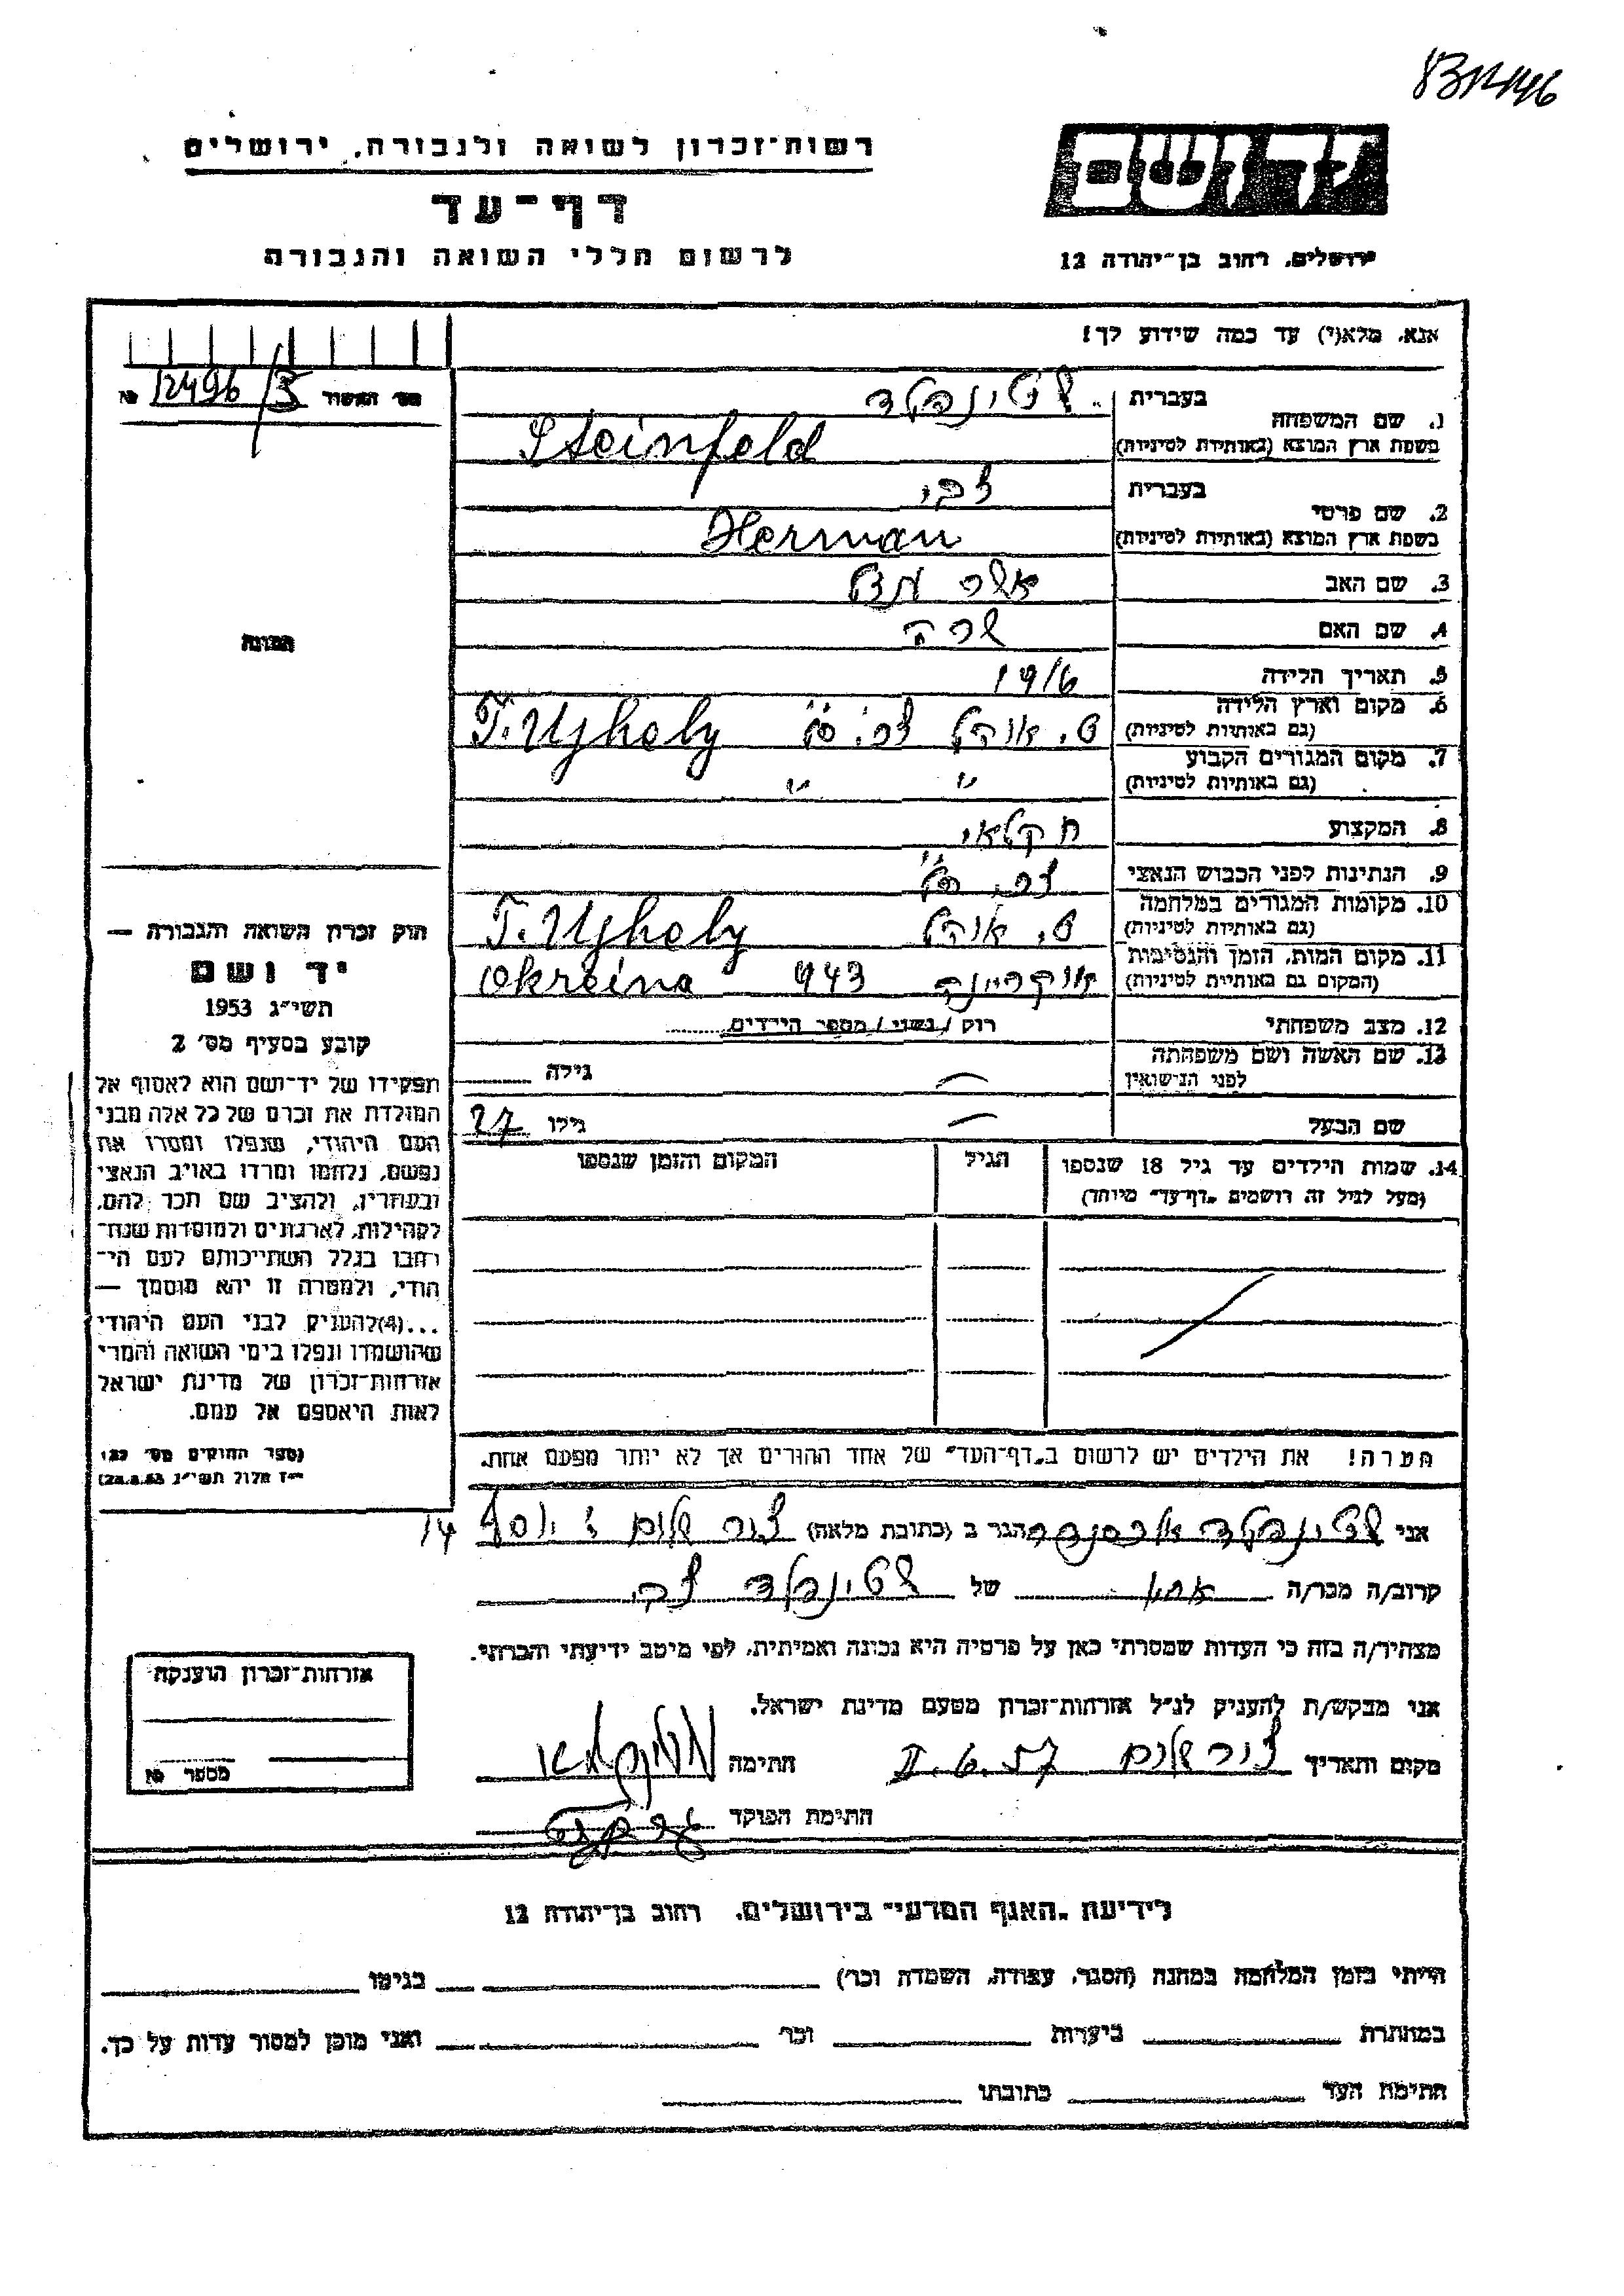 רשות־זכרון לשואה ולגבורה, ירושלים
דף־עד
לרשום חללי השואה והגבורה
יד ושם
ירושלים, רחוב בן־יהודה 12
אנא, מלא(י) עד כמה שידוע לך!
מס׳ האשור 12496/3 №
1. שם המשפחה בעברית שטינפלד
בשפת ארץ המוצא (באותיות לטיניות) Steinfeld
2. שם פרטי בעברית צבי
בשפת ארץ המוצא (באותיות לטיניות) Herman
3. שם האב אשר
4. שם האם שרה
5. תאריך הלידה 1916
6. מקום וארץ הלידה
(גם באותיות לטיניות) T. Ujhely
7. מקום המגורים הקבוע
(גם באותיות לטיניות) " "
8. המקצוע חקלאי
9. הנתינות לפני הכבוש הנאצי
10. מקומות המגורים במלחמה
(גם באותיות לטיניות) T. Ujhely
11. מקום המות, הזמן והנסיבות
(המקום גם באותיות לטיניות) אוקריינה 943 Okreina
12. מצב משפחתי רווק / נשוי / מספר הילדים
13. שם האשה ושם משפחתה
לפני הנישואין גילה
שם הבעל גילו 27
14. שמות הילדים עד גיל 18 שנספו הגיל המקום והזמן שנספו
(מעל לגיל זה רושמים „דף־עד” מיוחד)
הערה! את הילדים יש לרשום ב„דף־העד” של אחד ההורים אך לא יותר מפעם אחת.
התמונה
חוק זכרון השואה והגבורה —
יד ושם
תשי״ג 1953
קובע בסעיף מס׳ 2
תפקידו של יד־ושם הוא לאסוף אל
המולדת את זכרם של כל אלה מבני
העם היהודי, שנפלו ומסרו את
נפשם, נלחמו ומרדו באויב הנאצי
ובעוזריו, ולהציב שם וזכר להם,
לקהילות, לארגונים ולמוסדות שנח־
רבו בגלל השתייכותם לעם הי־
הודי, ולמטרה זו יהא מוסמך —
...(4)להעניק לבני העם היהודי
שהושמדו ונפלו בימי השואה והמרי
אזרחות־זכרון של מדינת ישראל
לאות היאספם אל עמם.
(ספר החוקים מס׳ 132
י״ז אלול תשי״ג 28.8.53)
אני שטינפלד הגר ב (כתובת מלאה) 14
קרוב/ה מכר/ה אחיו של שטינפלד צבי
מצהיר/ה בזה כי העדות שמסרתי כאן על פרטיה היא נכונה ואמיתית, לפי מיטב ידיעתי והכרתי.
אני מבקש/ת להעניק לנ״ל אזרחות־זכרון מטעם מדינת ישראל.
מקום ותאריך 57 חתימה
חתימת הפוקד
אזרחות־זכרון הוענקה
מספר №
לידיעת „האגף המדעי” בירושלים, רחוב בן־יהודה 12
הייתי בזמן המלחמה במחנה (הסגר, עבודה, השמדה וכר׳) בגיטו
במחתרת ביערות וכר׳ ואני מוכן למסור עדות על כך.
חתימת העד כתובתו